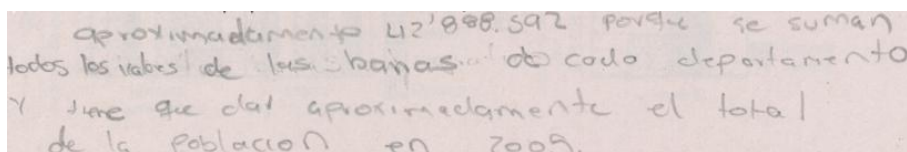 aproximadamente 42'888.592 porque se suman
todos los valores de las barras de cada departamento
y tiene que dar aproximadamente el total
de la poblacion en 2009.